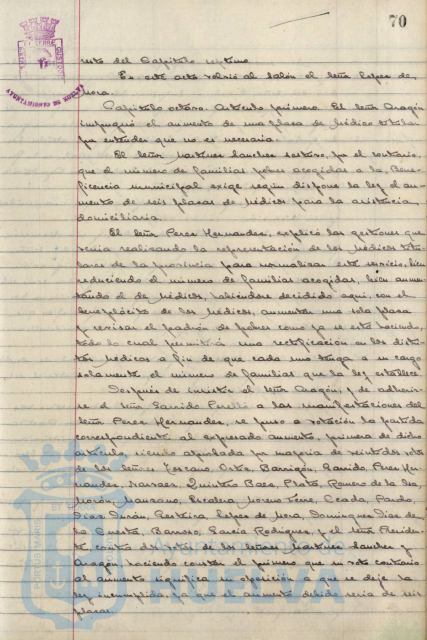 70
resto del Capítulo septimo.
En este acto volvió al salón el señor Lopez de
Mora.
Capítulo octavo. Artículo primero. El señor Aragón
impugnó el aumento de una plaza de Médico titular
por entender que no es necesaria.
El señor Martinez Sanchez sostuvo, por el contrario,
que el número de familias pobres acogidas a la Bene-
ficencia municipal exige según dispone la ley el au-
mento de seis plazas de Médicos para la asistencia
domiciliaria.
El señor Perez Hernandez, explicó las gestiones que
venia realizando la representación de los Médicos titu-
lares de la provincia para normalizar este servicio, bien
reduciendo el número de familias acogidas, bien aumen-
tando el de Médicos, habiendose decidido aqui, con el
beneplácito de los Médicos, aumentar una sola plaza
y revisar el padrón de pobres como ya se está haciendo,
todo lo cual permitirá una rectificación en los distri-
tos Médicos a fin de que cada uno tenga a su cargo
solamente el número de familias que la ley establece.
Después de insistir el señor Aragón, y de adherir-
se el señor Garrido Perelló a las manifestaciones del
señor Perez Hernandez, se puso a votación la partida
correspondiente al expresado aumento, primera de dicho
artículo, siendo aprobada por mayoria de veintidos votos
de los señores Toscano, Ortiz, Barrigón, Garrido, Perez Her-
nandez, Narvaez, Quintero Baez, Prats, Romero de la
Morón, Manzano, Escalera, Moreno, Pando,
Diaz Durán, Lopez de Mora, Dominguez, Diaz de
la Cuesta, Barroso, García Rodriguez, y el señor Presiden-
te, contra dos votos de los señores Martinez Sanchez y
Aragón, haciendo constar el primero que su voto contrario
al aumento significa su oposición a que se deje la
ley incumplida, ya que el aumento debido seria de seis
plazas.
AYUNTAMIENTO DE HUELVA
HUELVA